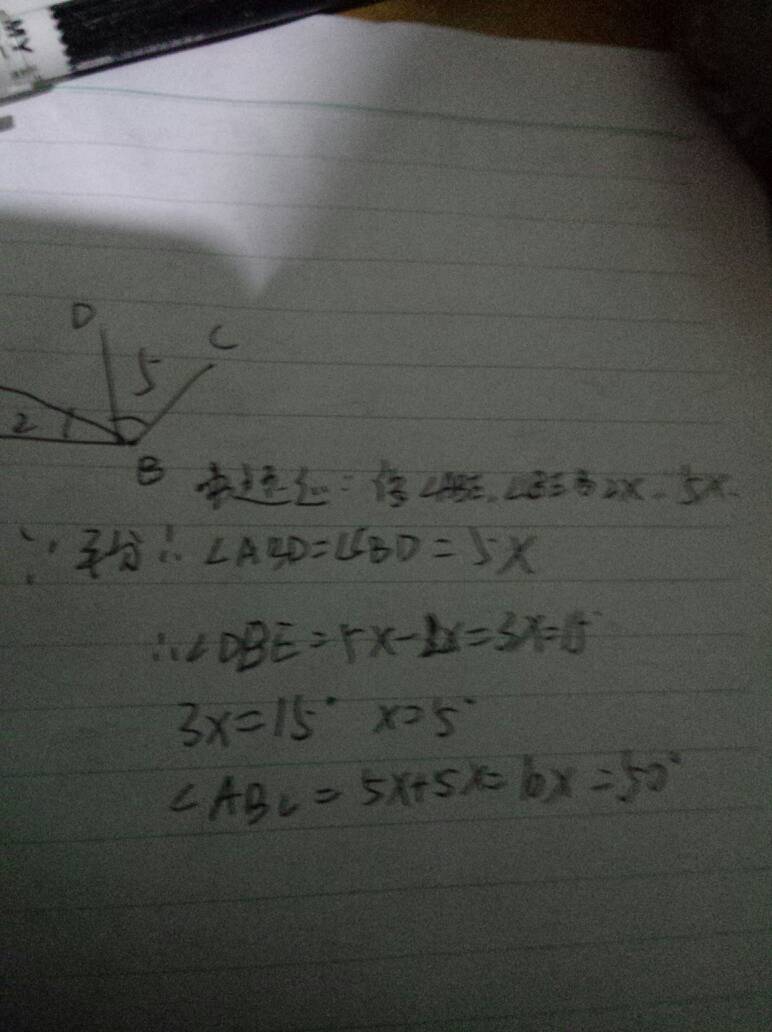 MY
D
C
5
2
B
∵平分∴∠ABD=∠CBD=5X
∴∠DBE=5X-2X=3X=15°
3X=15° X=5°
∠ABC=5X+5X=10X=50°